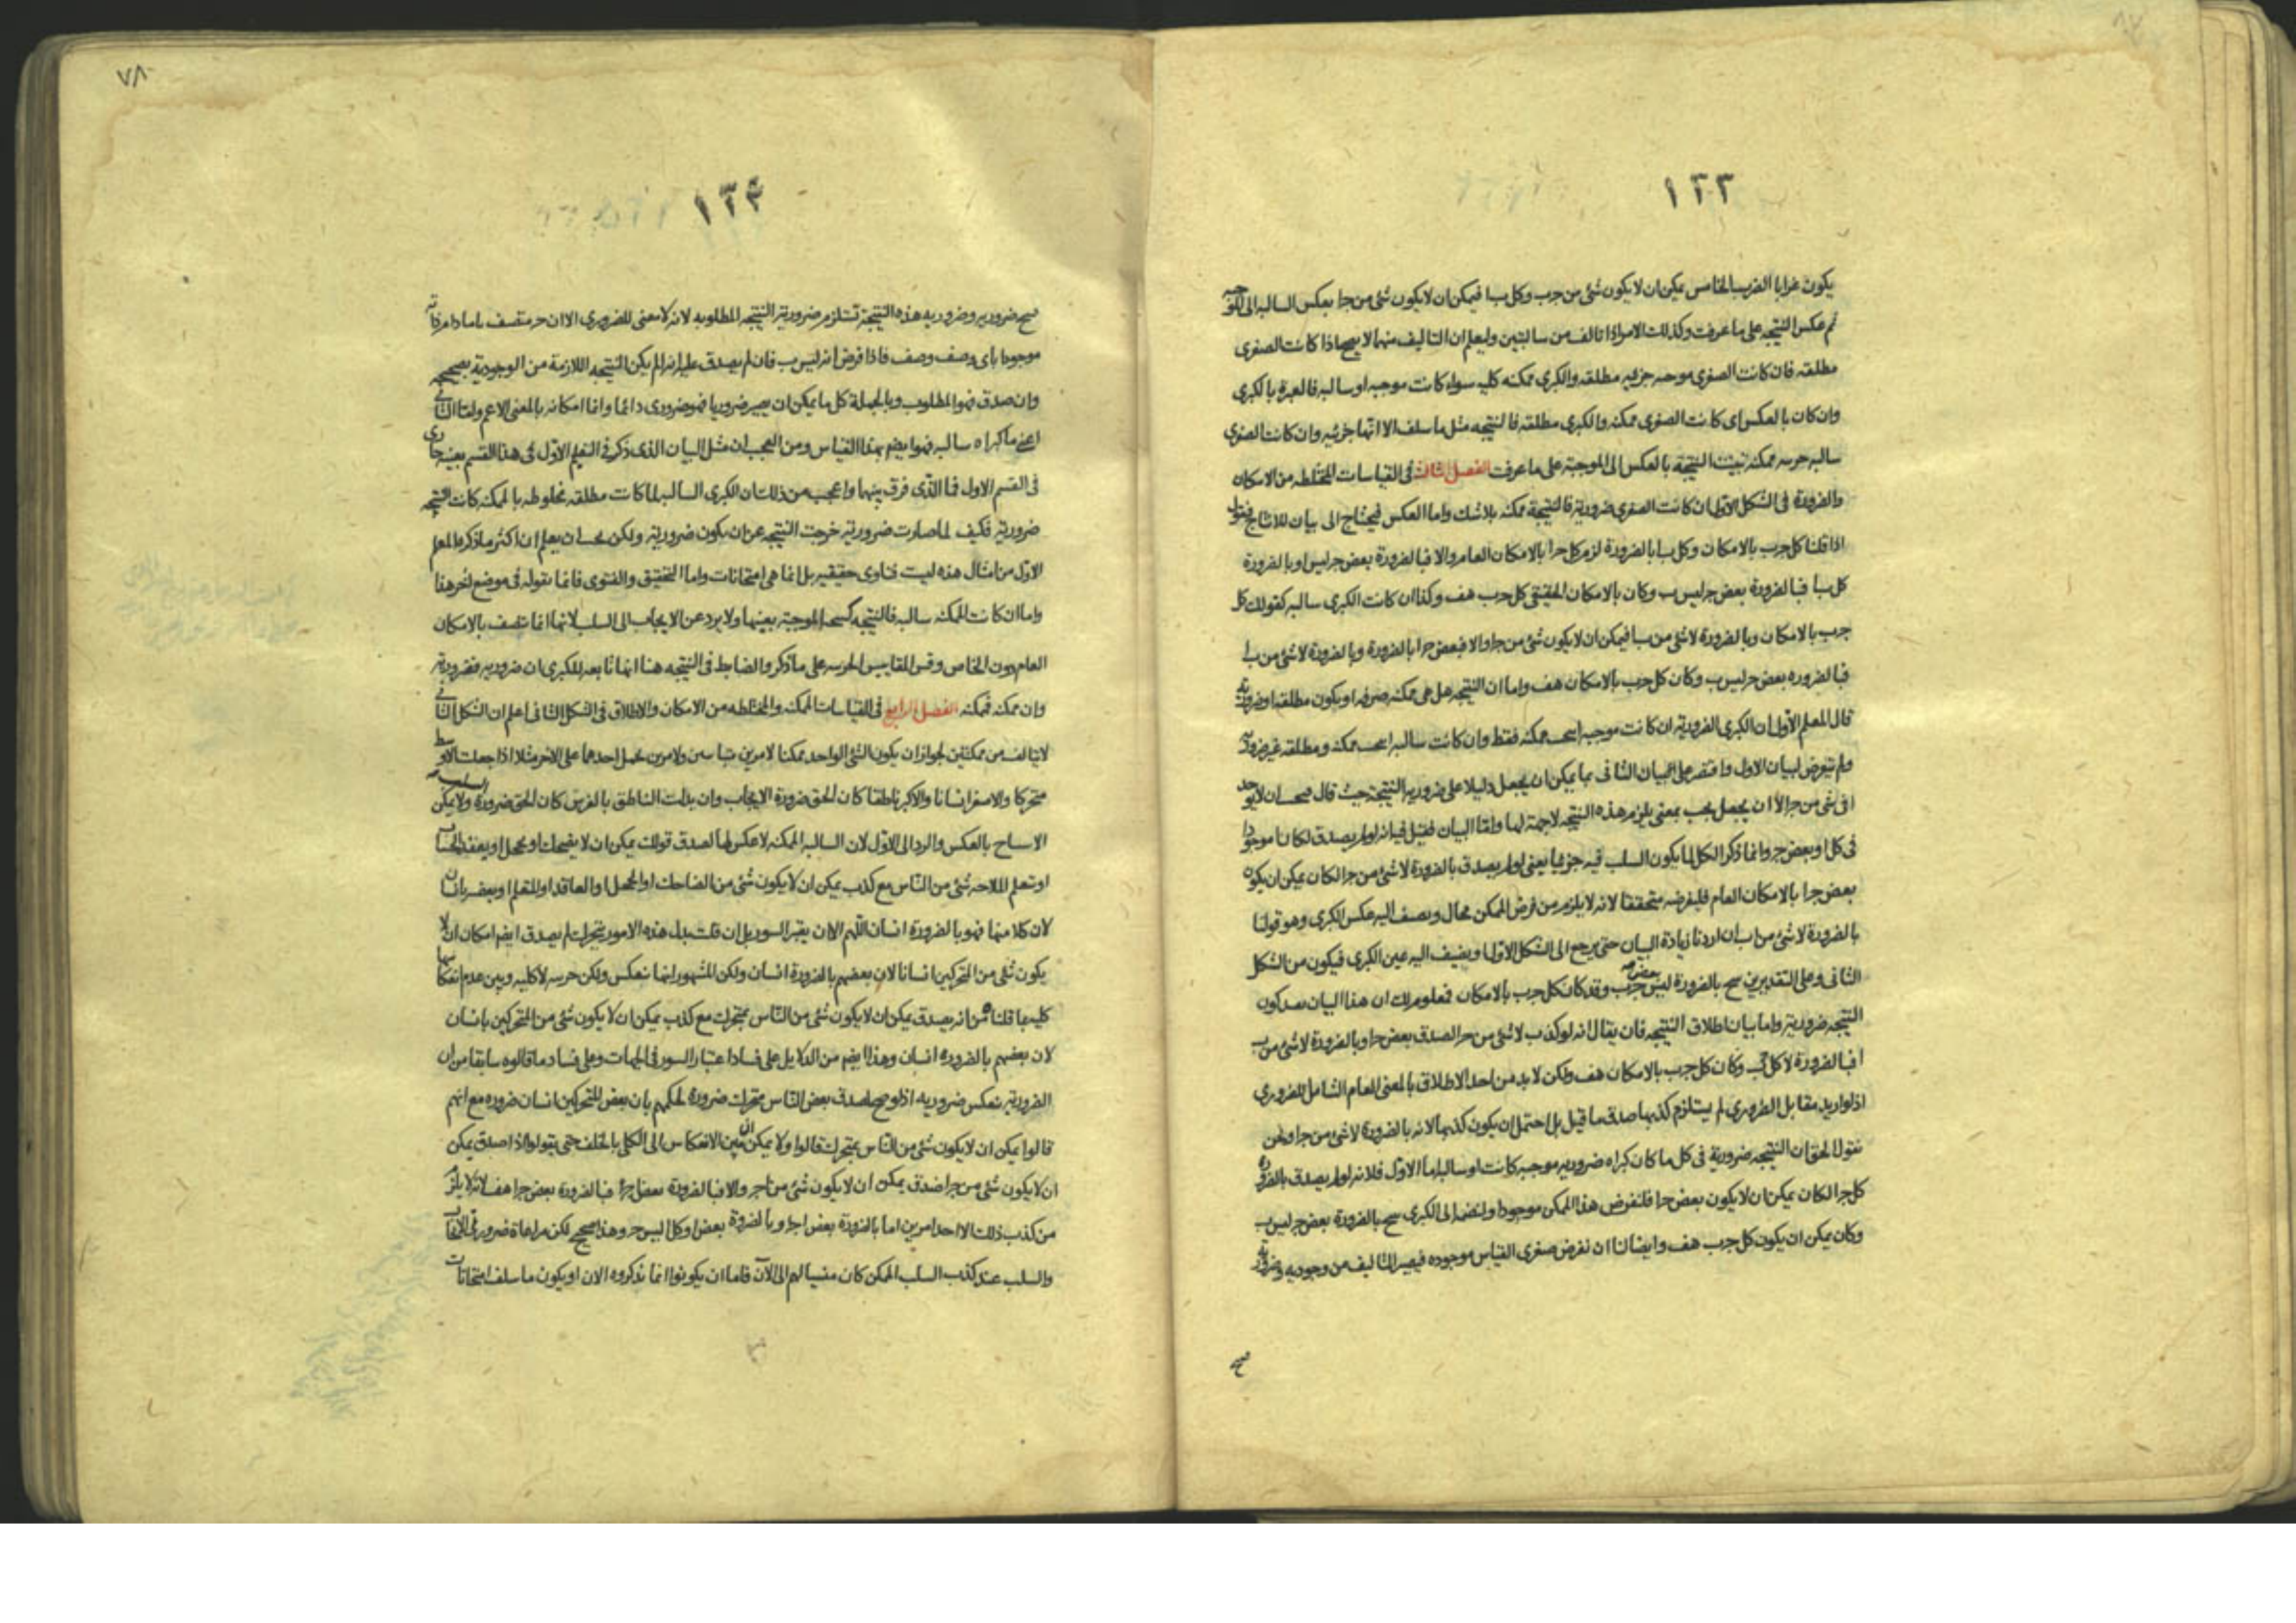 ١٢٣
يكون غرابا الضرب الخامس يمكن ان لا يكون شئ من جـ ب وكل ب ا فيمكن ان لا يكون شئ من جـ ا بعكس السالبه الى
ثم عكس النتيجه على ما عرفت وكذلك الامر اذا تالف من سالبتين وليعلم ان التاليف منهما لا يصح اذا كانت الصغرى
مطلقه فان كانت الصغرى موجبه جزئيه مطلقه والكبرى ممكنه كليه سواء كانت موجبه او سالبه فالعبرة بالكبرى
وان كان بالعكس اى كانت الصغرى ممكنه والكبرى مطلقه فالنتيجه مثل ما سلف الا انها جزئيه وان كانت الصغرى
سالبه جزئيه ممكنه تبينت النتيجه بالعكس الى الموجبة على ما عرفت الفصل ثالث فى القياسات المختلطه من الامكان
والضرورة فى الشكل الاول ان كانت الصغرى ضرورية فالنتيجة ممكنه بلاشك واما العكس فيحتاج الى بيان للانتاج فنقول
اذا قلنا كل جـ ب بالامكان وكل ب ا بالضرورة لزم كل جـ ا بالامكان العام والا فبالضرورة بعض جـ ليس ا وبالضرورة
كل ب ا فبالضرورة بعض جـ ليس ب وكان بالامكان الحقيقى كل جـ ب هف وكذا ان كانت الكبرى سالبه كقولك كل
جـ ب بالامكان وبالضرورة لا شئ من ب ا فيمكن ان لا يكون شئ من جـ ا والا فبعض جـ ا بالضرورة وبالضرورة لا شئ من ب ا
فبالضروره بعض جـ ليس ب وكان كل جـ ب بالامكان هف واما ان النتيجه هل هى ممكنه صرفه او يكون مطلقه او ضرورية
قال المعلم الاول ان الكبرى الضرورية ان كانت موجبه انتجت ممكنه فقط وان كانت سالبه انتجت ممكنه ومطلقه غير ضروريه
ولم يتعرض لبيان الاول واقتصر على البيان الثانى بما يمكن ان يجعل دليلا على ضروريه النتيجة حيث قال ان لا يوجد
ا فى شئ من جـ الا ان يجعل يجب بمعنى يلزم هذه النتيجه لا جهة لها واما البيان فقيل فيه انه لو لم يصدق لكان ا موجودا
فى كل او بعض جـ وانما ذكر الكل لما يكون السلب فيه جزئيا يعنى لو لم يصدق بالضرورة لا شئ من جـ ا لكان يمكن ان يكون
بعض جـ ا بالامكان العام فليفرضه متحققا لانه لا يلزم من فرض الممكن محال ونضف اليه عكس الكبرى وهو قولنا
بالضرورة لا شئ من ا ب ان اردنا زيادة البيان حتى يرجع الى الشكل الاول او يضيف اليه عين الكبرى فيكون من الشكل
الثانى وعلى التقديرين ينتج بالضرورة ليس بعض جـ ب وقد كان كل جـ ب بالامكان فمعلوم لك ان هذا البيان بعد كون
النتيجه ضرورية واما بيان اطلاق النتيجه فان يقال انه لو كذب لا شئ من جـ ا لصدق بعض جـ ا وبالضرورة لا شئ من ب
ا فبالضرورة لا كل جـ ب وكان كل جـ ب بالامكان هف ولكن لا بد من اخذ الاطلاق بالمعنى العام الشامل للضرورى
اذ لو اريد مقابل الضرورى لم يستلزم كذبها صدق ما قيل بل احتمل ان يكون كذبها لانه بالضرورة لا شئ من جـ ا ونحن
نقول الحق ان النتيجه ضرورية فى كل ما كان كبراه ضروريه موجبه كانت او سالبه اما الاول فلانه لو لم يصدق بالضرورة
كل جـ ا لكان يمكن ان لا يكون بعض جـ ا فلنفرض هذا الممكن موجودا ولنضف الى الكبرى ينتج بالضرورة بعض جـ ليس ب
وكان يمكن ان يكون كل جـ ب هف وايضا لنا ان نفرض صغرى القياس موجوده فيصير التاليف من وجوديه وضرورية
ينتج
٧٨
١٢٤
ينتج ضروريه وضروريه هذه النتيجة تستلزم ضرورية النتيجه المطلوبه لانه لا معنى للضرورى الا ان جـ متصف با ما دام ذاته
موجودا باى وصف وصف فاذا فرض انه ليس ب فان لم يصدق عليه انه ا لم يكن النتيجه اللازمة من الوجودية صحيحه
وان صدق فهو المطلوب وبالجملة كل ما يمكن ان يصير ضروريا فهو ضرورى دائما وانما امكانه بالمعنى الاعم واما الثانى
اعنى ما كبراه سالبه فهو ايضا بهذا القياس ومن العجب ان مثل البيان الذى ذكر فى التعليم الاول فى هذا القسم بعينه جارى
فى القسم الاول فما الذى فرق بينهما واعجب من ذلك ان الكبرى السالبه لما كانت مطلقه مخلوطه بالممكنه كانت النتيجه
ضرورية فكيف لما صارت ضرورية خرجت النتيجه عن ان يكون ضرورية ولكن يجب ان يعلم ان اكثر ما ذكره المعلم
الاول من امثال هذه ليست فتاوى حقيقيه بل انما هى امتحانات واما التحقيق والفتوى فانما نقوله فى موضع اخر هذا
واما ان كانت الممكنه سالبه فالنتيجه كنتيجه الموجبة بعينها ولا يرد عن الايجاب الى السلب لانها انما تتصف بالامكان
العام دون الخاص وقس المقاييس الجزئيه على ما ذكر والضابط فى النتيجه هنا انها تابعه للكبرى ان ضروريه فضرورية
وان ممكنه فممكنه الفصل الرابع فى القياسات الممكنه والمختلطه من الامكان والاطلاق فى الشكل الثانى اعلم ان الشكل الثانى
لا يتالف من ممكنتين لجواز ان يكون الشئ الواحد ممكنا لامرين متباينين ولامرين يحمل احدهما على الاخر مثلا اذا جعلت الاوسط
متحركا والاصغر انسانا والاكبر ناطقا كان الحق ضرورة الايجاب وان بدلت الناطق بالفرس كان الحق ضرورة السلب ولا يمكن
الانتاج بالعكس والرد الى الاول لان السالبه الممكنه لا عكس لها لصدق قولك يمكن ان لا يضحك او يخجل او يعقد الحساب
او تعلم الملاحه شئ من الناس مع كذب يمكن ان لا يكون شئ من الضاحك او الخجل او العاقد او المتعلم او بعضه بانسان
لان كلا منها فهو بالضرورة انسان اللهم الا ان يعتبر السور بل ان قلت بدل هذه الامور يتحرك لم يصدق ايضا امكان ان لا
يكون شئ من المتحركين انسانا لان بعضهم بالضرورة انسان ولكن المشهور انها تنعكس ولكن جزئيه لا كليه وبين عدم انعكاسها
كليه بما قلنا من انه يصدق يمكن ان لا يكون شئ من الناس بمتحرك مع كذب يمكن ان لا يكون شئ من المتحركين بانسان
لان بعضهم بالضروره انسان وهذا ايضا من الدلايل على فساد اعتبار السور فى الجهات وعلى فساد ما قالوه سابقا من ان
الضرورية تنعكس ضروريه اذ لو صح لصدق بعض الناس متحرك ضرورة لحكمهم بان بعض المتحركين انسان ضروره مع انهم
قالوا يمكن ان لا يكون شئ من الناس بمتحرك قالوا ولا يمكن ان يبين الانعكاس الى الكلى بالخلف حتى يقولوا اذا صدق يمكن
ان لا يكون شئ من جـ ا صدق يمكن ان لا يكون شئ من ا جـ والا فبالضرورة بعض ا جـ فبالضرورة بعض جـ ا هف لانه لا يلزم
من كذب ذلك الا احد امرين اما بالضرورة بعض ا جـ او بالضرورة بعض ا وكل ا ليس جـ وهذا صحيح لكن مراعاة ضرورتى الايجاب
والسلب عند كذب السلب الممكن كان منسيا لهم الى الآن فاما ان يكونوا انما تذكروه الان او يكون ما سلف امتحانات